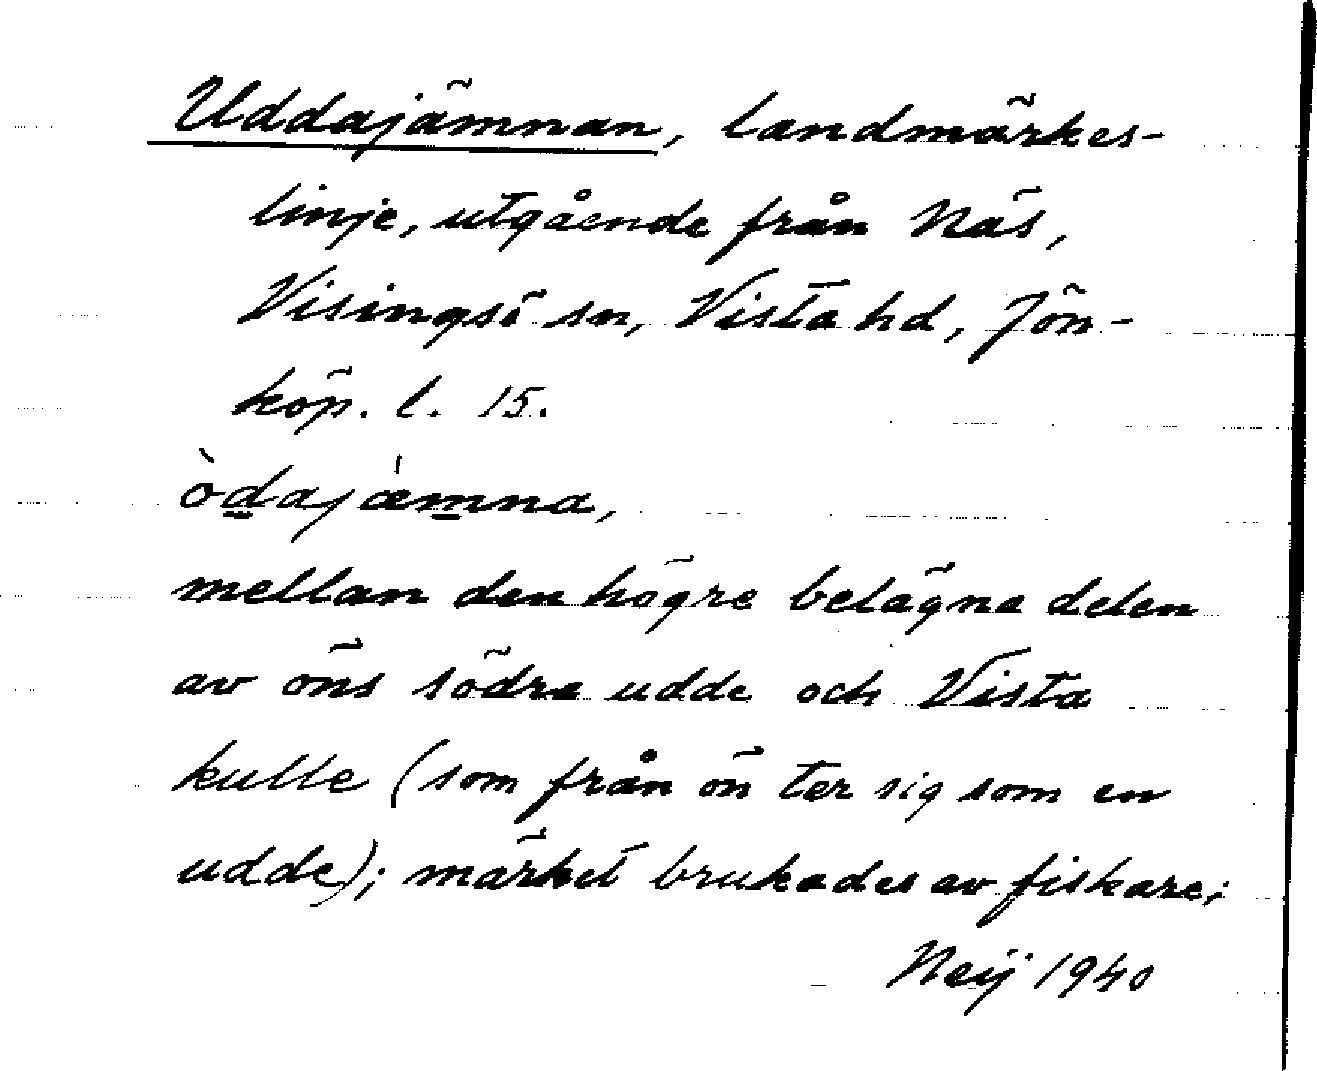 Uddajämnan, landmärkes-
linje, utgående från Näs,
Visingsö sn, Vista hd, Jön-
köp. l. 15.
òdajæ̀mna,
mellan den högre belägna delen
av öns södra udde och Vista
kulle (som från ön ter sig som en
udde); märket brukades av fiskare;
Neij 1940